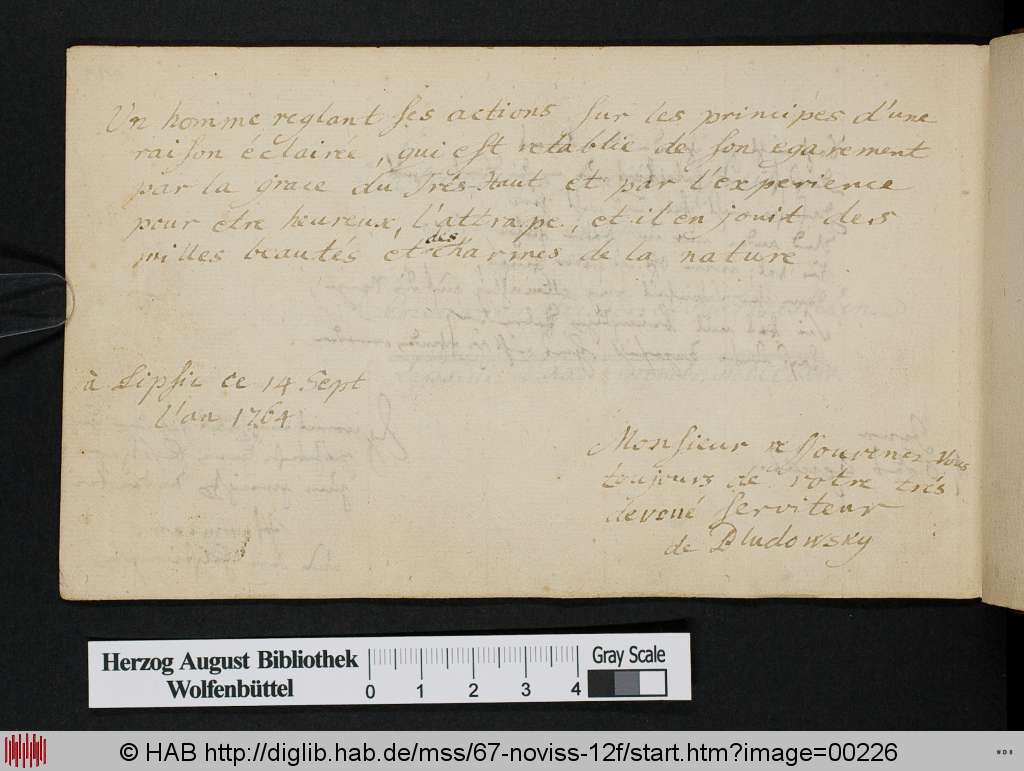 Un homme reglant ses actions sur les principes d'une
raison éclairée, qui est retablie de son egarement
par la grace du Trés-Haut et par l'experience
pour etre heureux, l'attrape, et il en jouit des
milles beautés et des charmes de la nature
à Lipsic ce 14 Sept
l'an 1764
Monsieur souvenez Vous
toujours de votre trés
devoué serviteur
de Dludowsky
Herzog August Bibliothek
Wolfenbüttel
0 1 2 3 4
Gray Scale
© HAB http://diglib.hab.de/mss/67-noviss-12f/start.htm?image=00226
WDB